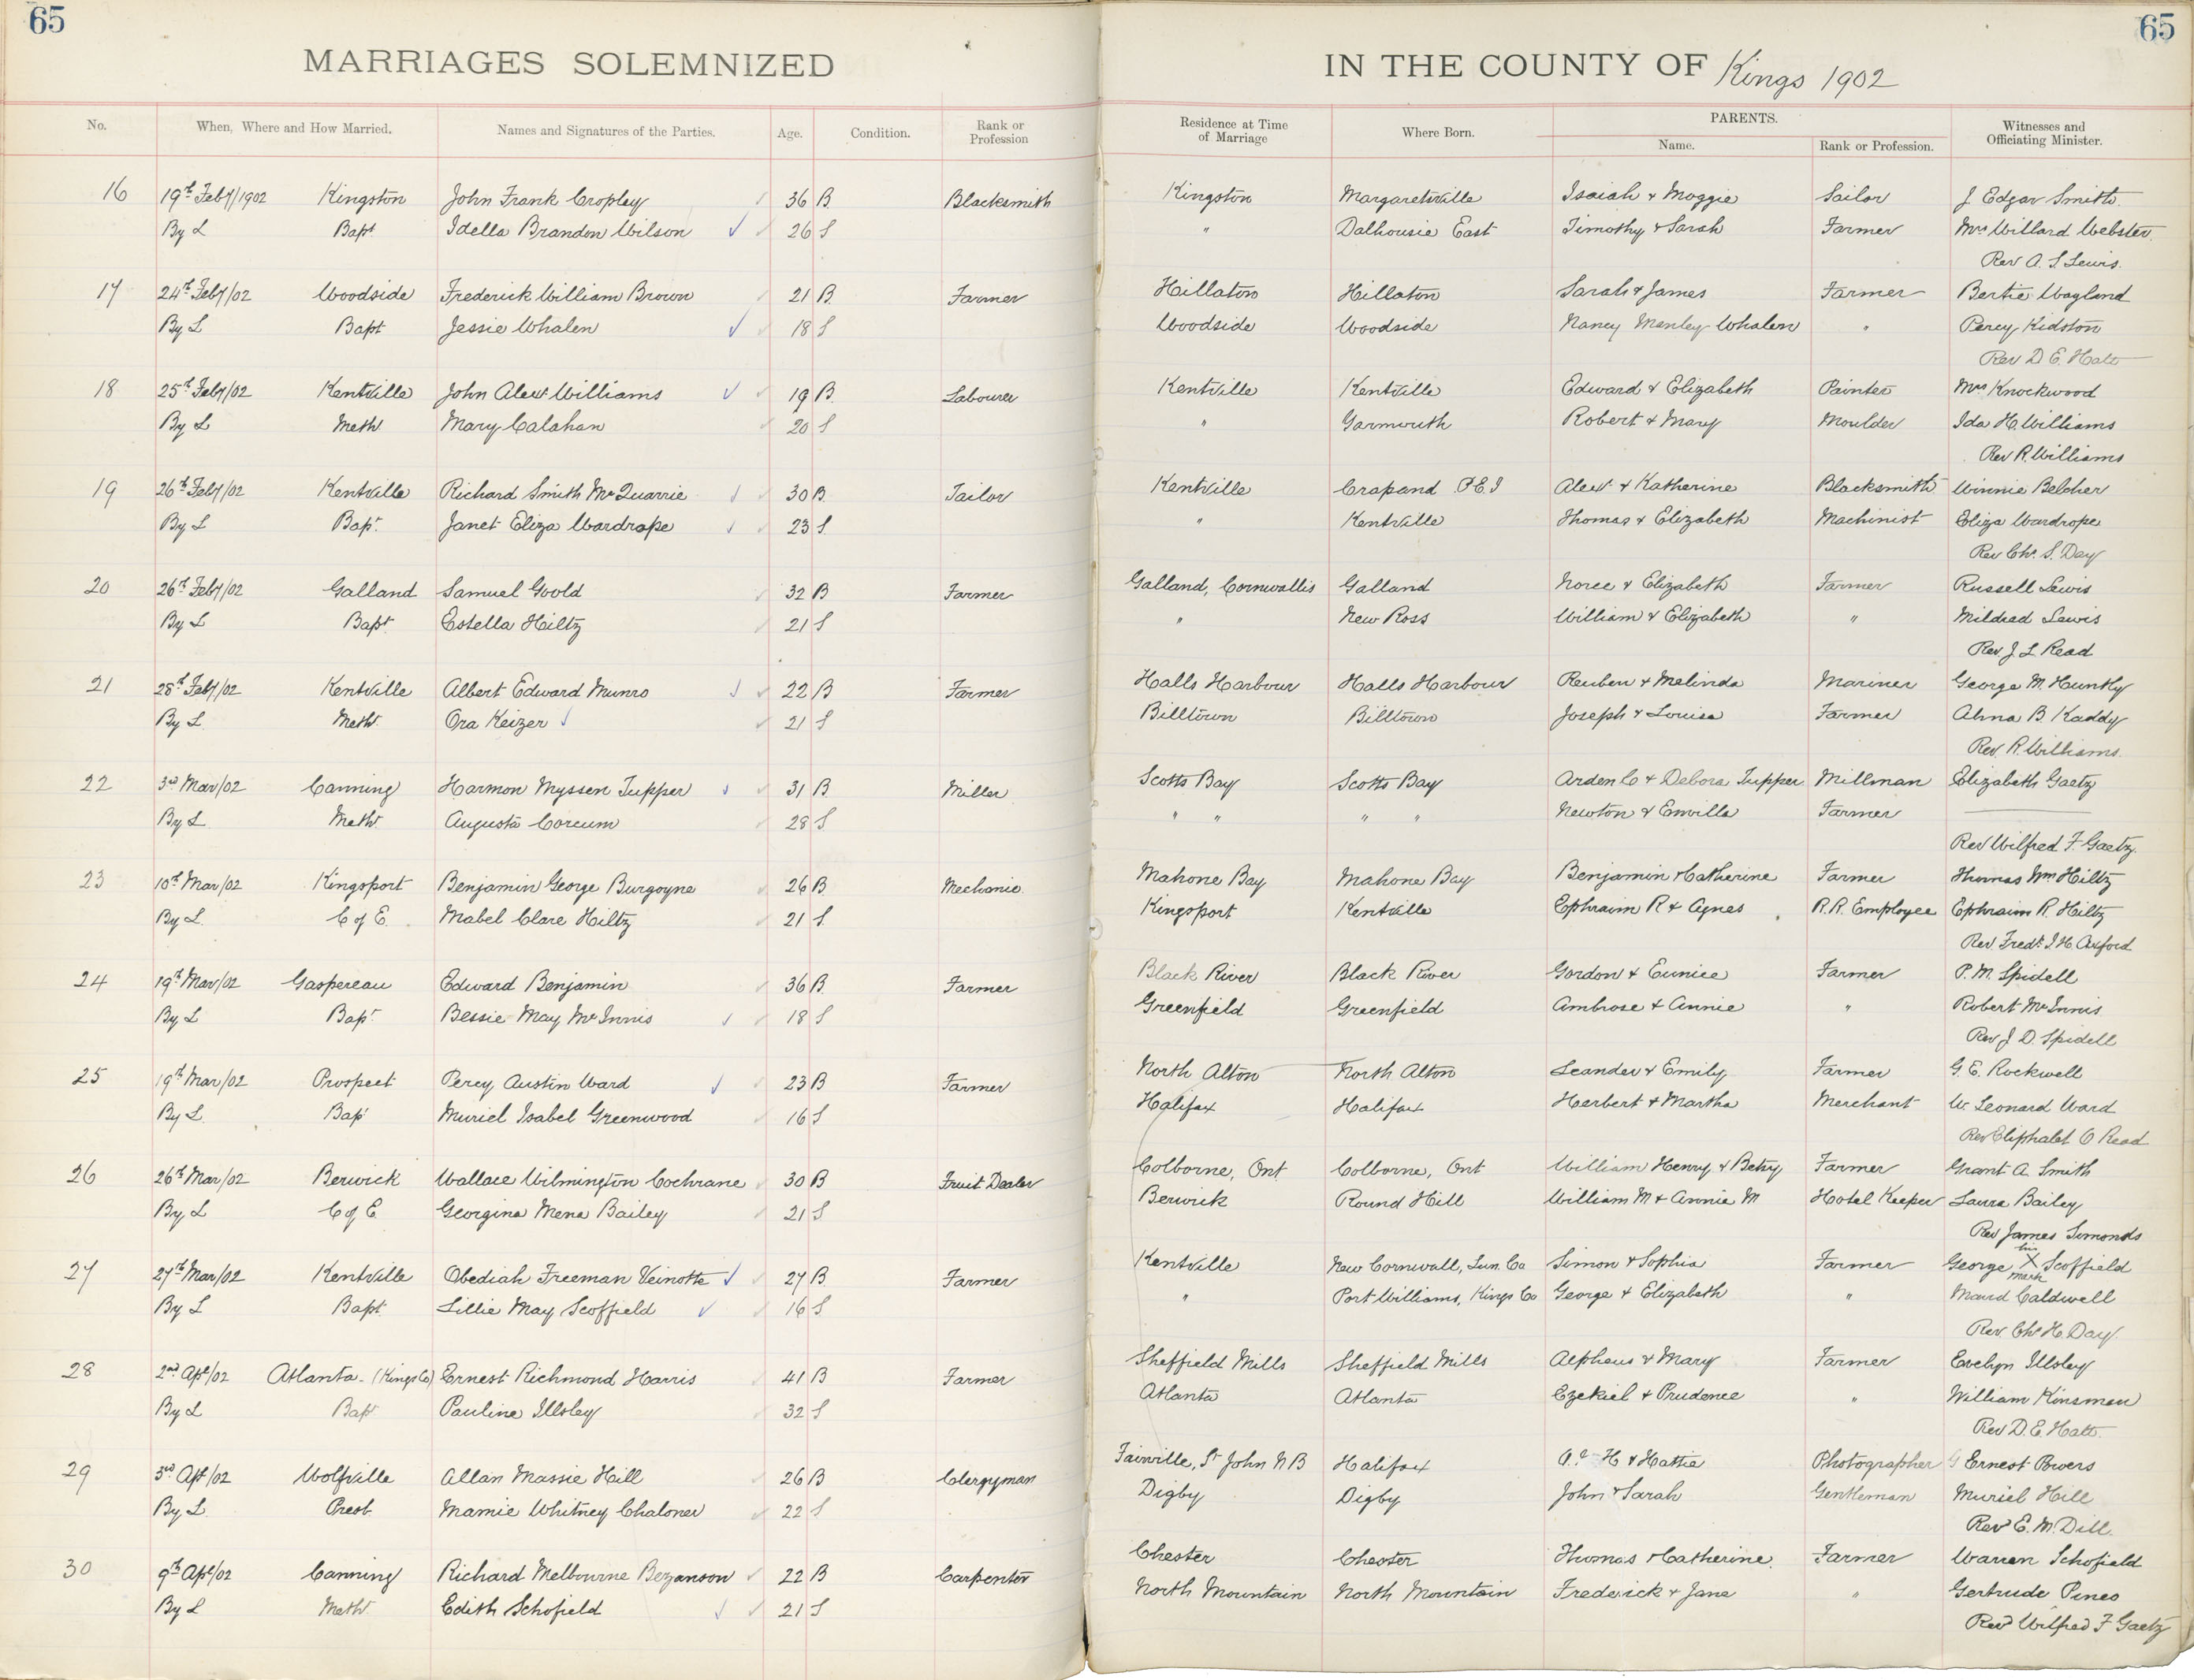 65 65
MARRIAGES SOLEMNIZED IN THE COUNTY OF Kings 1902
No. When, Where and How Married. Names and Signatures of the Parties. Age. Condition. Rank or Profession Residence at Time of Marriage Where Born. PARENTS. Name. Rank or Profession. Witnesses and Officiating Minister.
16 19th Feby/1902 Kingston John Frank Cropley 36 B. Blacksmith Kingston Margaretsville Isaiah & Maggie Sailor J Edgar Smith.
By L Bapt Idella Brandon Wilson 26 S " Dalhousie East Timothy & Sarah Farmer Mrs Willard Webster.
Rev A. S Lewis.
17 24th Feby/02 Woodside Frederick William Brown 21 B. Farmer Hillaton Hillaton Sarah & James Farmer Bertie Wayland
By L Bapt Jessie Whalen 18 S Woodside Woodside Nancy Manley Whalen " Percy Kidston
Rev D E. Hatt
18 25th Feby/02 Kentville John Alexr Williams 19 B. Labourer Kentville Kentville Edward & Elizabeth Painter Mrs Knockwood
By L Meth Mary Calahan 20 S " Yarmouth Robert & Mary Moulder Ida H. Williams
Rev R. Williams
19 26th Feby/02 Kentville Richard Smith McQuarrie 30 B. Tailor Kentville Crapaud P.E.I Alexr & Katherine Blacksmith Winnie Belcher
By L Bapt. Janet Eliza Wardrope 23 S. " Kentville Thomas & Elizabeth Machinist Eliza Wardrope
Rev Chs. S. Day
20 26th Feby/02 Galland Samuel Goold 32 B Farmer Galland, Cornwallis Galland & Elizabeth Farmer Russell Lewis
By L Bapt. Estella Hiltz 21 S " New Ross William & Elizabeth " Mildred Lewis
Rev J. L Read
21 28th Feby/02 Kentville Albert Edward Munro 22 B Farmer Halls Harbour Halls Harbour Reuben & Melinda Mariner George M. Huntly
By L. Meth Ora Keizer 21 S Billtown Billtown Joseph & Louisa Farmer Alma B. Kaddy
Rev. R. Williams.
22 3rd Mar/02 Canning Harmon Myssen Tupper 31 B Miller Scotts Bay Scotts Bay Arden C & Debora Tupper Millman Elizabeth Gaetz
By L Meth Augusta Corcum 28 S " " " " Newton & Emvilla Farmer
Rev Wilfred F. Gaetz.
23 10th Mar/02 Kingsport Benjamin George Burgoyne 26 B. Mechanic. Mahone Bay Mahone Bay Benjamin & Catherine Farmer Thomas Wm Hiltz
By L. C of E. Mabel Clare Hiltz 21 S. Kingsport Kentville Ephraim R & Agnes R.R. Employee Ephraim R. Hiltz
Rev Fredk J H Axford
24 19th Mar/02 Gaspereau Edward Benjamin 36 B. Farmer Black River Black River Gordon & Eunice Farmer P. M. Spidell
By L Bapt Bessie May McInnis 18 S Greenfield Greenfield Ambrose & Annie " Robert McInnis
Rev J. D. Spidell
25 19th Mar/02 Prospect Percy Austin Ward 23 B Farmer North Alton North Alton Leander & Emily Farmer G. E. Rockwell
By L. Bapt Muriel Isabel Greenwood 16 S Halifax Halifax Herbert & Martha Merchant W. Leonard Ward
Rev Eliphalet O Read
26 26th Mar/02 Berwick Wallace Wilmington Cochrane 30 B Fruit Dealer Colborne, Ont. Colborne, Ont William Henry & Betsy Farmer Grant A. Smith
By L C of E Georgina Mena Bailey 21 S Berwick Round Hill William M & Annie M Hotel Keeper Laura Bailey
Rev James Simonds
27 27th Mar/02 Kentville Obediah Freeman Veinotte 27 B Farmer Kentville New Cornwall, Lun. Co Simon & Sophia Farmer George his X mark Scoffield
By L Bapt. Lillie May Scoffield 16 S " Port Williams, Kings Co George & Elizabeth " Maud Caldwell
Rev Chs H. Day.
28 2nd Apl/02 Atlanta - (Kings Co) Ernest Richmond Harris 41 B Farmer Sheffield Mills Sheffield Mills Alpheus & Mary Farmer Evelyn Illsley
By L Bapt Pauline Illsley 32 S Atlanta Atlanta Ezekiel & Prudence " William Kinsman
Rev. D. E. Hatt.
29 3rd Apl/02 Wolfville Allan Massie Hill 26 B Clergyman Fairville, St John N B Halifax H & Hattie Photographer G Ernest Powers
By L Presb Mamie Whitney Chaloner 22 S Digby Digby John & Sarah Gentleman Muriel Hill
Rev E. M. Dill.
30 9th Apl/02 Canning Richard Melbourne Bezanson 22 B Carpenter Chester Chester Thomas & Catherine Farmer Warren Schofield
By L Meth Edith Schofield 21 S North Mountain North Mountain Frederick & Jane " Gertrude Pineo
Revd Wilfred F Gaetz